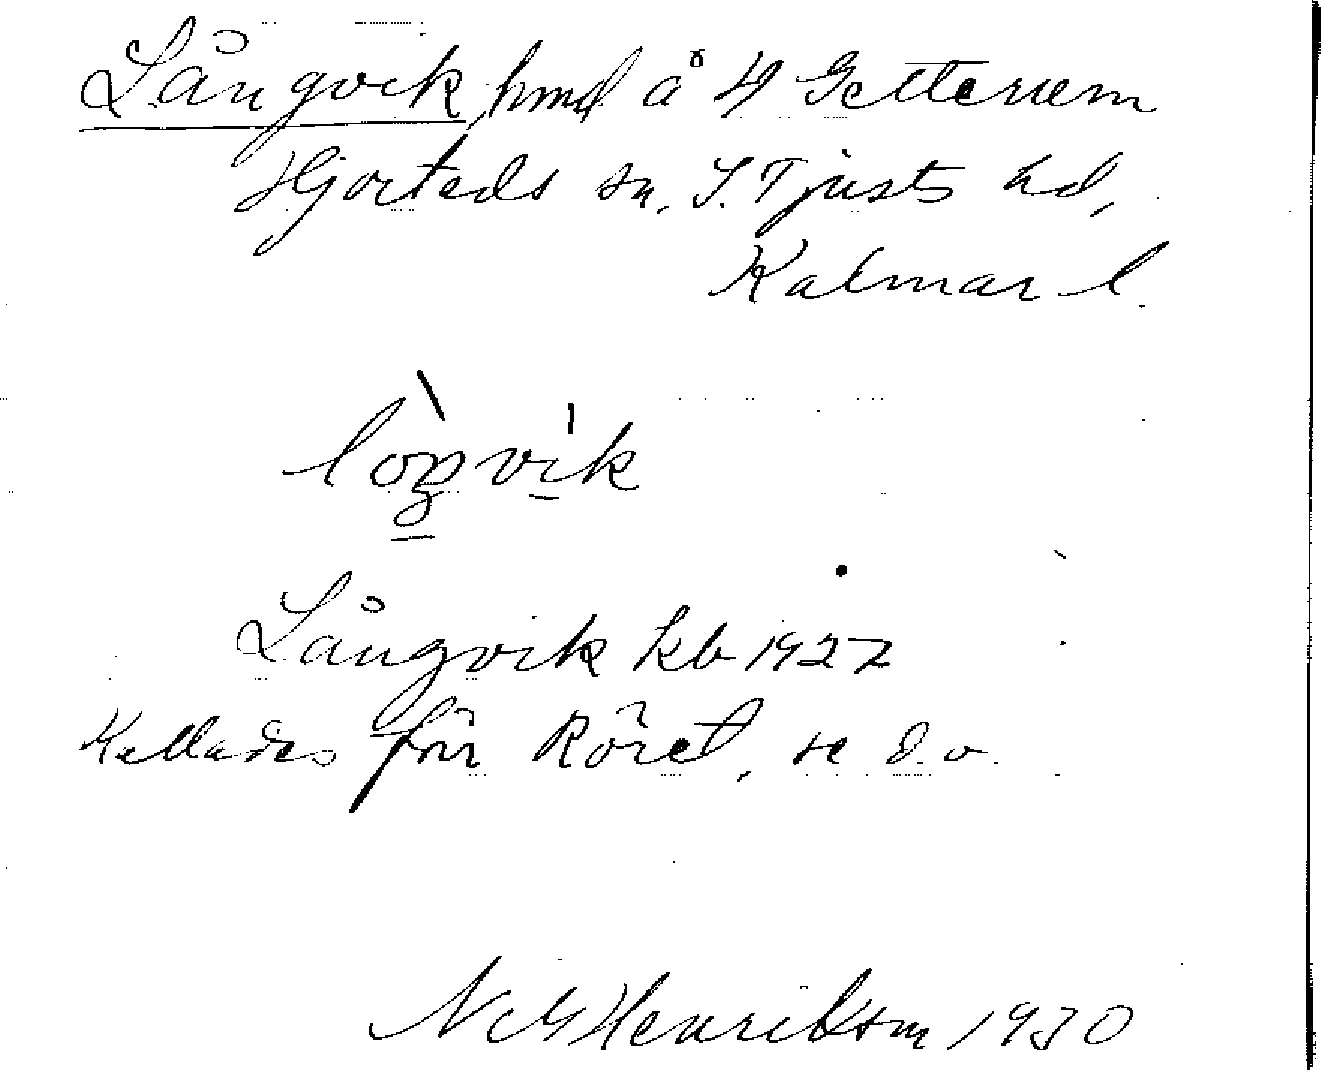 Långvik, hmd å 4 Getterum
Hjorteds sn, S. Tjusts hd,
Kalmar l.
lo̱ŋvi̱k
Långvik kb 1922
Kallades förr Röret, se d.o.
N G Henriksson 1930